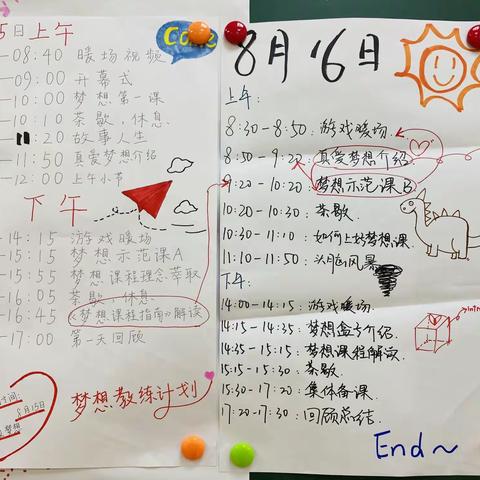 5日上午
-08:40 暖场视频
-09:00 开幕式
-10:00 梦想第一课
-10:10 茶歇,休息.
20 故事人生
-11:50 真爱梦想介绍
-12:00 上午小节
下午
-14:15 游戏暖场
-15:15 梦想示范课A
-15:55 梦想课程理念萃取
-16:05 茶歇,休息
-16:45 《梦想课程指南》解读
-17:00 第一天回顾
时间:
8月15日
梦想
梦想教练计划
8月16日
上午:
8:30-8:50:游戏暖场.
8:50-9:20:真爱梦想介绍
9:20-10:20:梦想示范课B
10:20-10:30:茶歇.
10:30-11:10:如何上好梦想课.
11:10-11:50:头脑风暴
下午:
14:00-14:15:游戏暖场.
14:15-14:35:梦想盒子介绍.
14:35-15:15:梦想课程解读.
15:15-15:30:茶歇.
15:30-17:20:集体备课.
17:20-17:30:回顾总结.
End~